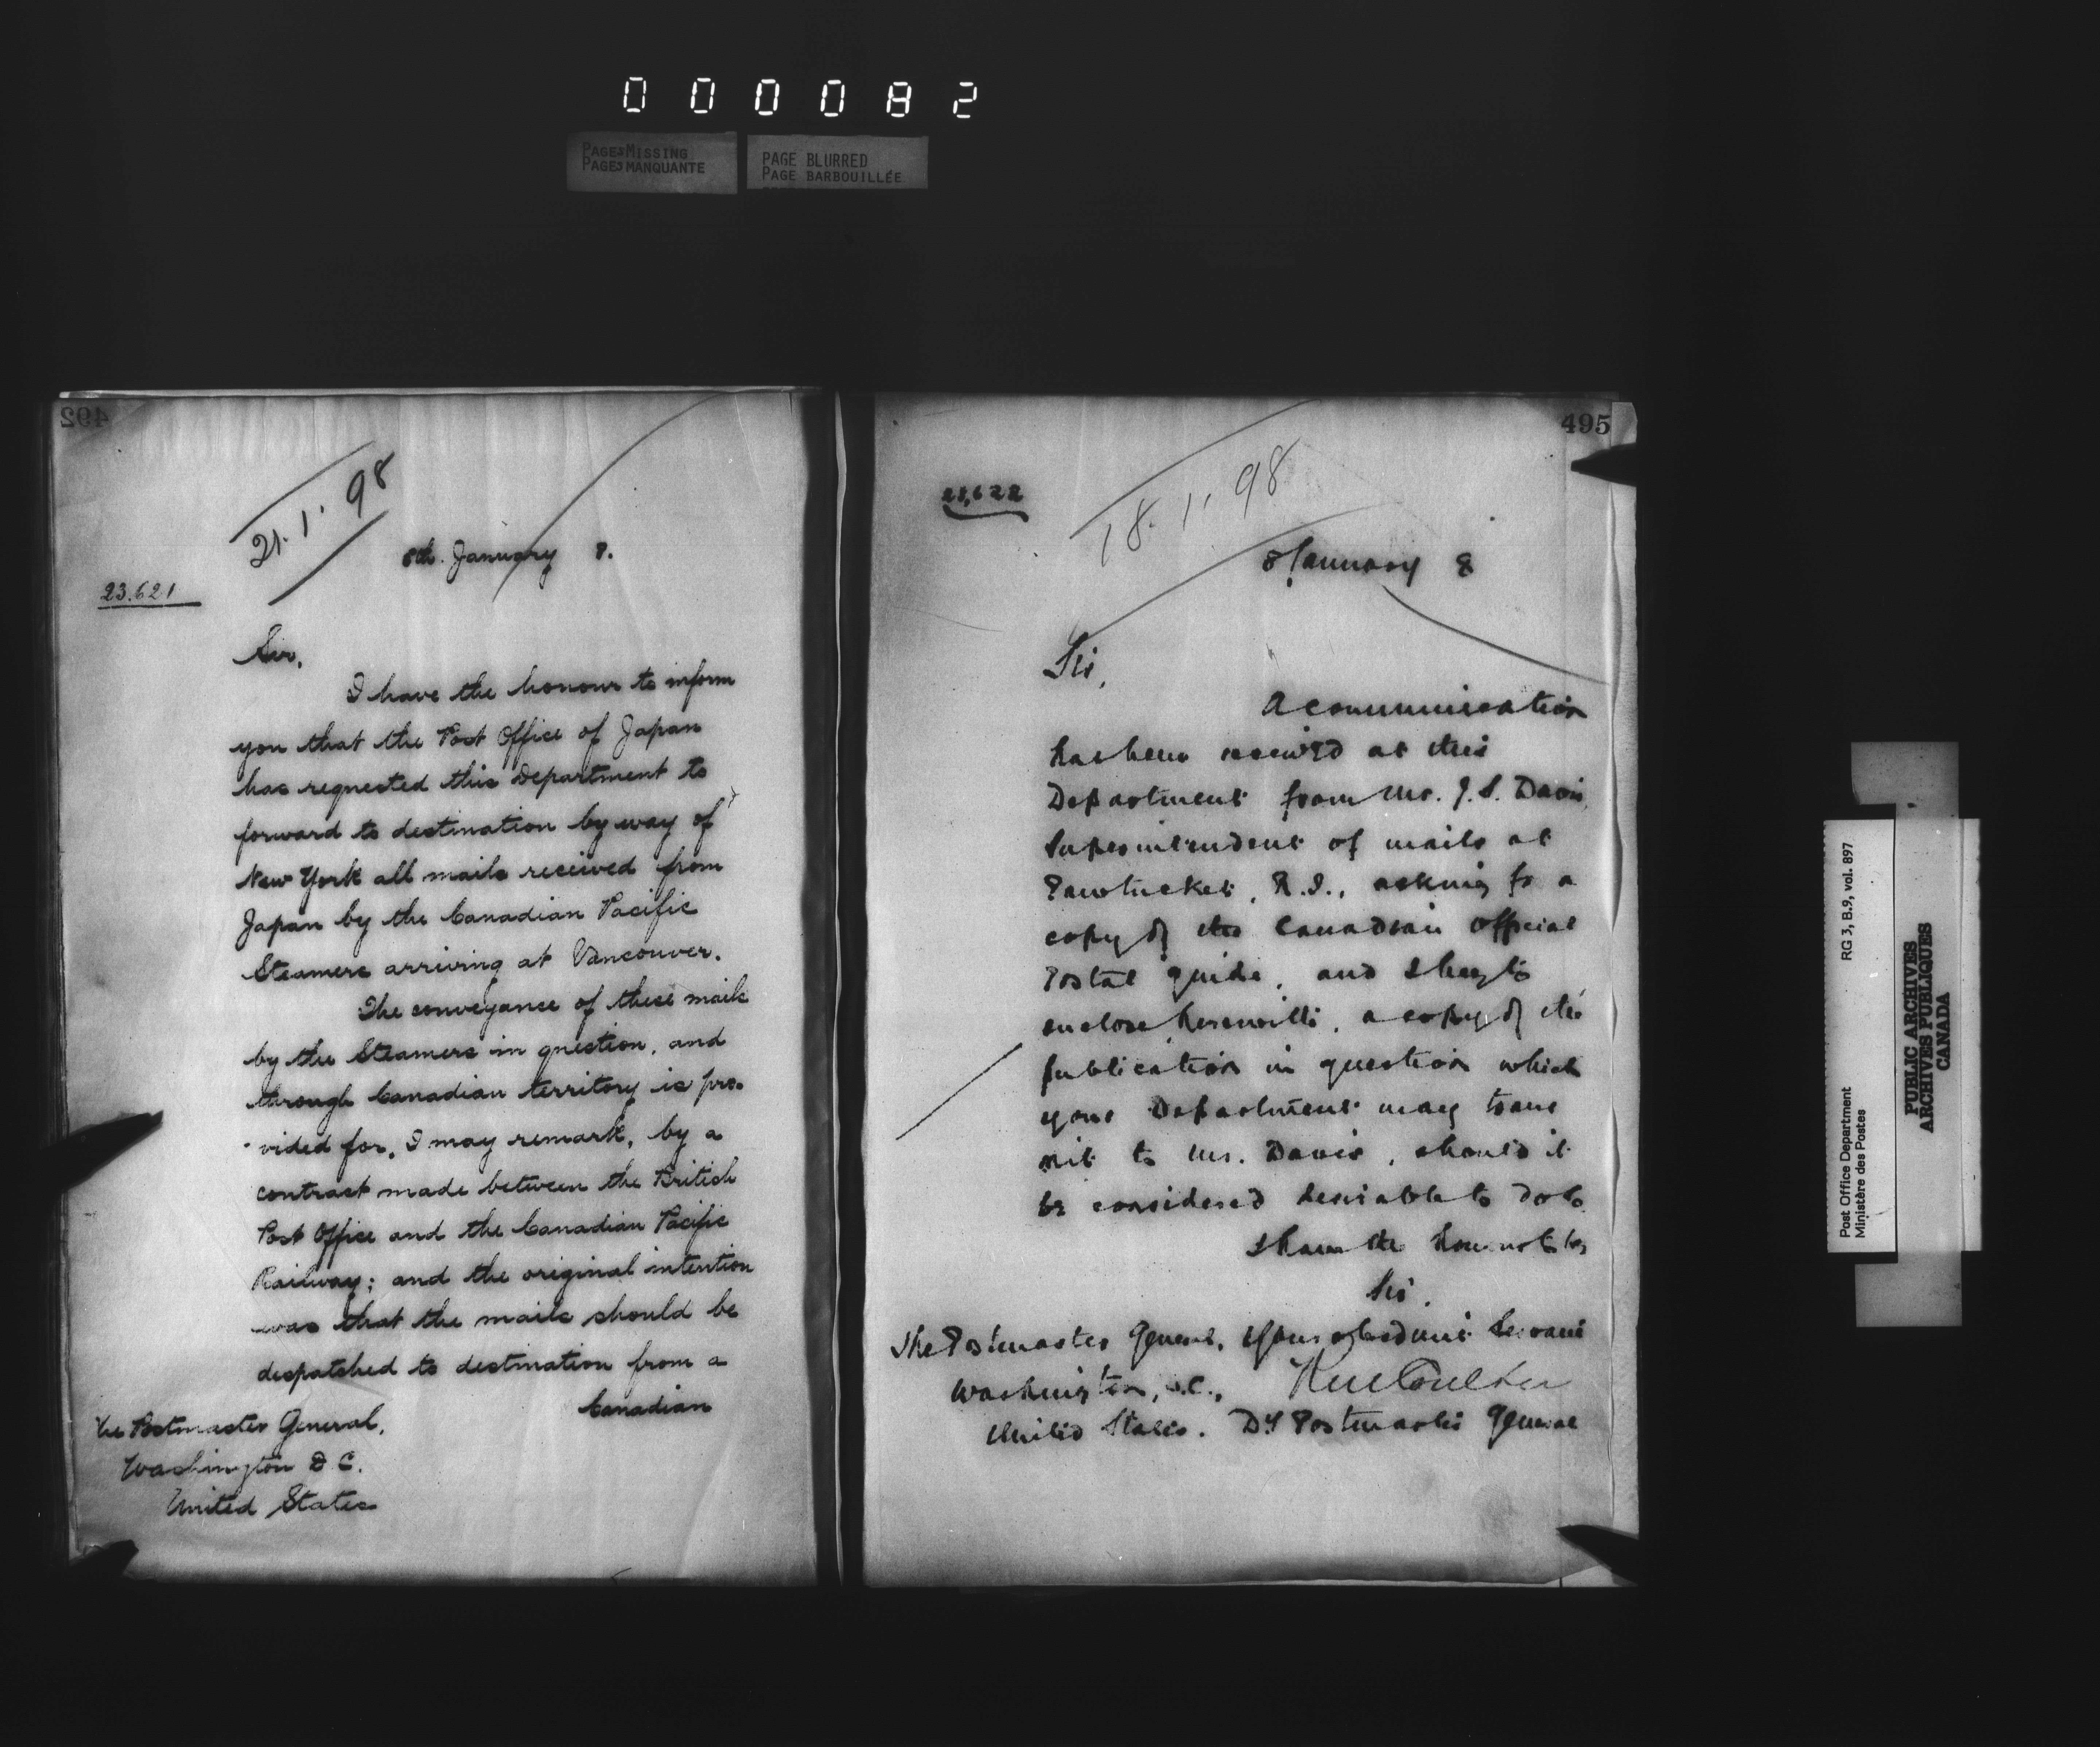 000082
PAGES MISSING
PAGES MANQUANTE
PAGE BLURRED
PAGE BARBOUILLÉE
492
21.1.98
8th. January 8.
23.621
Sir,
I have the honour to inform
you that the Post Office of Japan
has requested this Department to
forward to destination by way of
New York all mails received from
Japan by the Canadian Pacific
Steamers arriving at Vancouver.
The conveyance of these mails
by the Steamers in question, and
through Canadian territory is pro-
vided for, I may remark, by a
contract made between the British
Post Office and the Canadian Pacific
Railway; and the original intention
was that the mails should be
despatched to destination from a
Canadian
The Postmaster General,
Washington D C.
United States
495
23,622
18.1.98
8 January 8
Sir,
A communication
has been received at this
Department from Mr. J. S. Davis,
Superintendent of mails at
Pawtucket, R.I., asking for a
copy of the Canadian Official
Postal guide, and I beg to
enclose herewith, a copy of the
publication in question which
your Department may trans
mit to Mr. Davis, should it
be considered desirable to do so.
I have the honour to be,
Sir,
Your obedient Servant
The Postmaster General,
Washington, D.C.,
United States.
RM Coulter
Dy Postmaster General
Post Office Department
Ministère des Postes
RG 3, B.9, vol. 897
PUBLIC ARCHIVES
ARCHIVES PUBLIQUES
CANADA